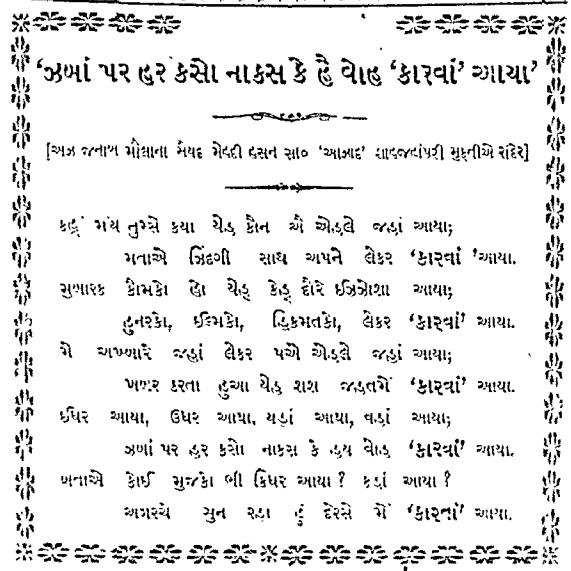 ‘ઝબાં પર હર કસો નાકસ કે હૈ વોહ ‘કારવાં’ આયા’
[અઝ જનાબ મૌલાના સૈયદ મેહદી હસન સા૦ ‘આઝાદ’ શાહજહાંપરી મુફતીએ રાંદેર]
કહું મંય તુમ્સે કયા યેહ કૌન એ એહલે જહાં આયા;
મતાએ ઝિંદગી સાથ અપને લેકર ‘કારવાં ’આયા.
મુબારક કૌમકો હો યેહ કેહ દૌરે ઈઝઝોશા આયા;
હુનરકો, ઈલ્મકો, હિકમતકો, લેકર ‘કારવાં’ આયા.
મે અખ્બારે જહાં લેકર પએ એહલે જહાં આયા;
ખબર કરતા હુઆ યેહ શશ જહતમેં ‘કારવાં’ આયા.
ઈધર આયા, ઉધર આયા, યહાં આયા, વહાં આયા;
ઝબાં પર હર કસો નાકસ કે હય વોહ ‘કારવાં’ આયા.
બતાએ કોઈ મુજકો ભી કિધર આયા ? કહાં આયા ?
અગરચે સુન રહા હું દેરસે મેં ‘કારવાં’ આયા.